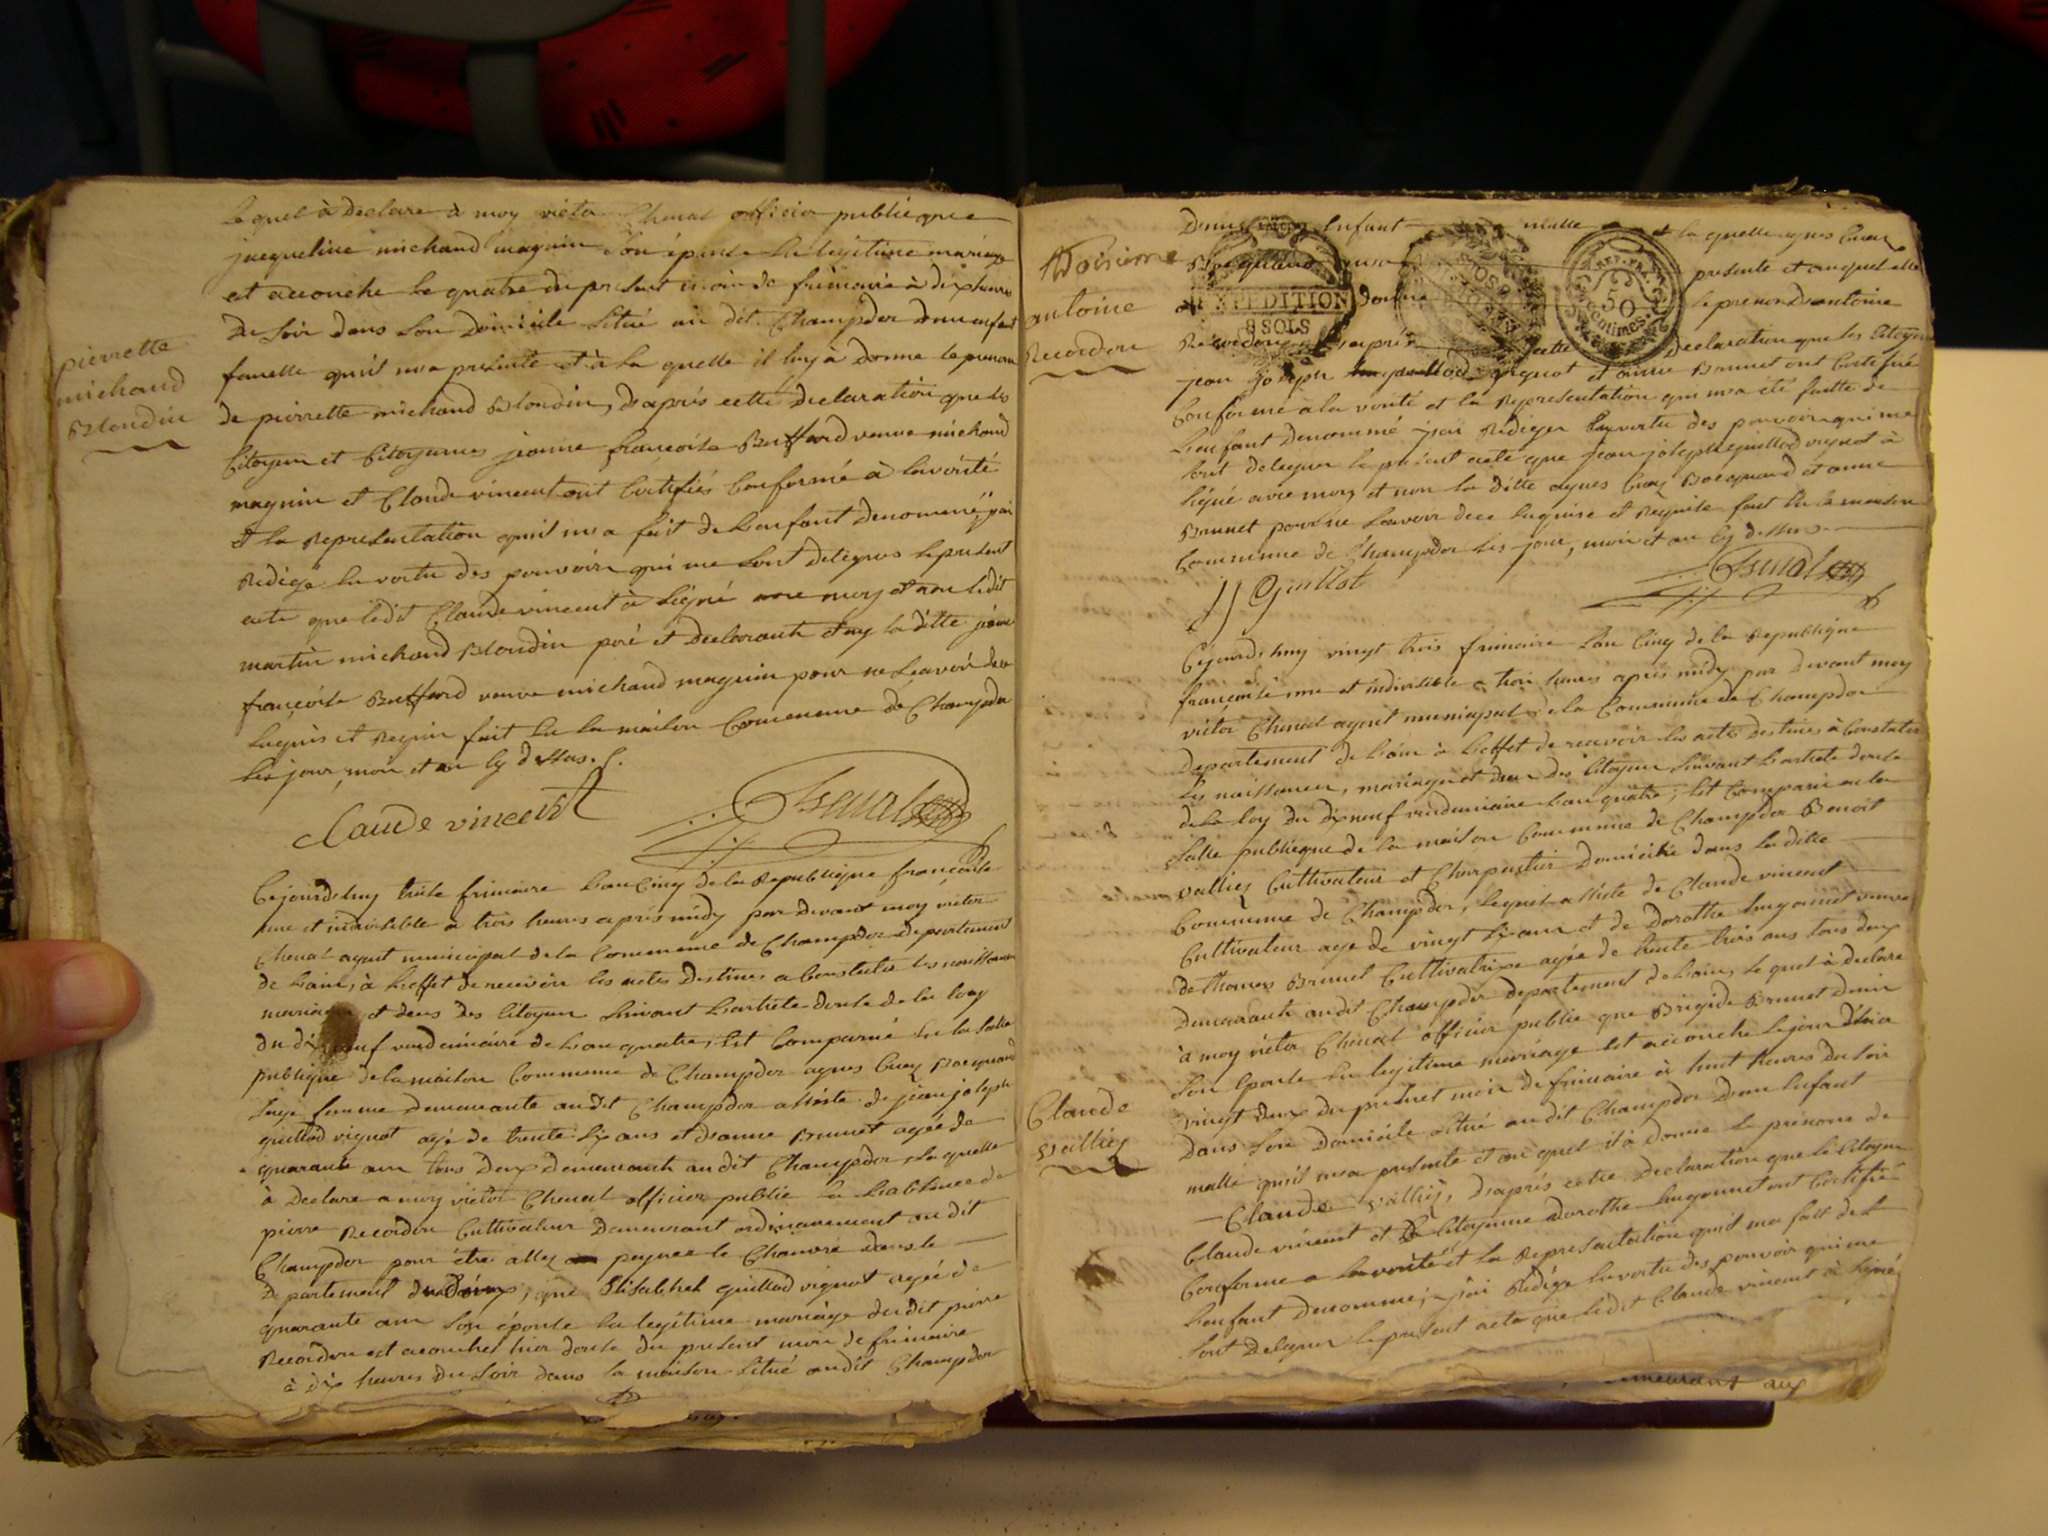 pierrette
michaud
Blondin
lequel à declare à moy victor Chenal officier publicque
jacqueline michaud maguin son épouse en legitime mariage
est accouche le quatre du present mois de frimaire à dix heures
du soir dans son domicile situé au dit Champdor d'une enfant
femelle qu'il m'a presente et à la quelle il luy à donne le prenom
de pierrette michaud Blondin, d'après cette declaration que les
Citoyen et Citoyennes jeanne françoise Buffard veuve michaud
maguin et Claude vincent ont Certifiés Conformé à la vérité
et la Representation qu'il m'a fait de l'enfant denommé, j'ai
Redigé en vertu des pouvoirs qui me sont delegues le present
acte que ledit Claude vincent à signé avec moy et non ledit
martin michaud Blondin peré et declarant et ny la ditte jeanne
françoise Buffard veuve michaud maguin pour ne sçavoir de ce
enquis et Requis fait en la maison Commune de Champdor
les jour, mois et an cy dessus.
Claude vincent
Chenal
Cejourd'huy treise frimaire l'an Cinq de la Republique françoise
une et indivisible à trois heures après midy par devant moy victor
Chenal agent municipal de la Commune de Champdor departement
de l'ain, à l'effet de recevoir les actes destines a Constater les naissances
mariages et deces des Citoyen suivant l'article douse de la loy
du dix neuf vendemiaire de l'an quatre, est Comparue en la salle
publique de la maison Commune de Champdor agnes Cuaz Bocquand
sage femme demeurante audit Champdor assiste de jean joseph
guillod vignot agé de trente six ans et d'anne Brunet agée de
quarante ans tous deux demeurants audit Champdor, la quelle
à declare a moy victor Chenal officier public en l'absence de
pierre Recordon Cultivateur demeurant ordinairement audit
Champdor pour être allez peigner le Chanvre dans le
departement, que Elisabhet guillod vignot agée de
quarante ans son épouse en legitime mariage dudit pierre
Recordon est acouchée hier douse du present mois de frimaire
à dix heures du soir dans la maison situé audit Champdor
antoine
Recordon
EXPEDITION
9 SOLS
REP. FRA.
50
centimes
d'une Enfant malle et la quelle agnes Cuaz
Bocquand presente et auquel elle
donne le prenom d'antoine
Recordon d'après cette declaration que les Citoyens
jean joseph guillod vignot et anne Brunet ont Certifié
Conforme à la verité et la Representation qui m'a été faitte de
l'enfant denommé j'ai Rediger en vertu des pouvoirs qui me
sont deleguer le present acte que jean joseph guillod vignot à
signé avec moy et non la ditte agnes Cuaz Bocquand et anne
Brunet pour ne sçavoir de ce enquise et Requise fait en la maison
Commune de Champdor les jour, mois et an cy dessus
JJ Guillot
Chenal
Cejourd'huy vingt trois frimaire l'an Cinq de la Republique
françoise une et indivisible a trois heures après midy par devant moy
victor Chenal agent municipal de la Commune de Champdor
departement de l'ain à l'effet de recevoir les actes destinés à Constater
les naissances, mariages et deces des Citoyen suivant l'article douse
de la loy du dix neuf vendemiaire l'an quatre, est Comparu en la
salle publicque de la maison Commune de Champdor Benoit
valliez Cultivateur et Charpentier domicilié dans la ditte
Commune de Champdor, lequel assiste de Claude vincent
Cultivateur age de vingt six ans et de Dorothe hugonnet veuve
de thomas Brunet Cultivatrice agée de trente trois ans tous deux
demeurants audit Champdor departement de l'ain, le quel à declare
à moy victor Chenal officier public que Brigide Brunet
son épouse en legitime mariage est accouche le jour d'hier
vingt deux du present mois de frimaire à huit heures du soir
dans son domicile situé audit Champdor d'un Enfant
malle qu'il m'a presente et au quel il à donne le prenom de
Claude valliez, d'après cette declaration que le Citoyen
Claude vincent et la Citoyenne Dorothe hugonnet ont Certifié
Conforme a la verité et la Representation qu'il m'a fait de l'
Enfant denommé, j'ai Redigé en vertu des pouvoir qui me
sont deleguer le present acte que ledit Claude vincent à signé
Claude
valliez